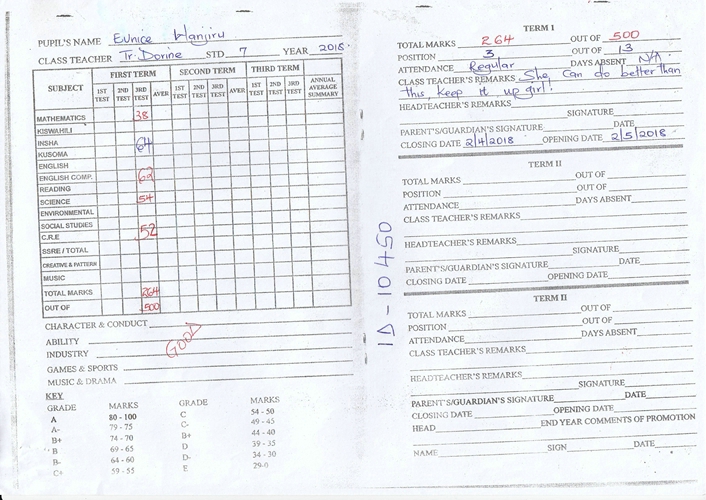 PUPIL'S NAME Eunice Wanjiru
CLASS TEACHER Tr. Dorine STD 7 YEAR 2018
SUBJECT FIRST TERM SECOND TERM THIRD TERM ANNUAL AVERAGE SUMMARY
1ST TEST 2ND TEST 3RD TEST AVER 1ST TEST 2ND TEST 3RD TEST AVER 1ST TEST 2ND TEST 3RD TEST
MATHEMATICS 38
KISWAHILI
INSHA 64
KUSOMA
ENGLISH
ENGLISH COMP.
READING
SCIENCE 54
ENVIRONMENTAL
SOCIAL STUDIES
C.R.E 52
SSRE / TOTAL
CREATIVE & PATTERN
MUSIC
TOTAL MARKS 264
OUT OF 500
CHARACTER & CONDUCT
ABILITY
INDUSTRY GOOD
GAMES & SPORTS
MUSIC & DRAMA
KEY
GRADE MARKS GRADE MARKS
A 80 - 100 C 54 - 50
A- 79 - 75 C- 49 - 45
B+ 74 - 70 B+ 44 - 40
B 69 - 65 D 39 - 35
B- 64 - 60 D- 34 - 30
C+ 59 - 55 E 29-0
ID-10450
TERM 1
TOTAL MARKS 264 OUT OF 500
POSITION 3 OUT OF 13
ATTENDANCE Regular DAYS ABSENT N/A
CLASS TEACHER'S REMARKS She can do better than
this, keep it up girl!
HEADTEACHER'S REMARKS
SIGNATURE
PARENT'S/GUARDIAN'S SIGNATURE
CLOSING DATE 2/4/2018 OPENING DATE 2/5/2018
TERM II
TOTAL MARKS OUT OF
POSITION OUT OF
ATTENDANCE DAYS ABSENT
CLASS TEACHER'S REMARKS
HEADTEACHER'S REMARKS
SIGNATURE
PARENT'S/GUARDIAN'S SIGNATURE
CLOSING DATE OPENING DATE
TERM II
TOTAL MARKS OUT OF
POSITION OUT OF
ATTENDANCE DAYS ABSENT
CLASS TEACHER'S REMARKS
HEADTEACHER'S REMARKS
SIGNATURE DATE
PARENT'S/GUARDIAN'S SIGNATURE DATE
CLOSING DATE OPENING DATE
HEAD END YEAR COMMENTS OF PROMOTION
NAME SIGN DATE